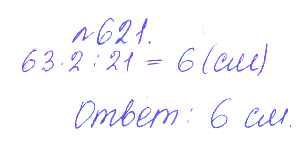 №621.
63·2:21 = 6 (см)
Ответ: 6 см.